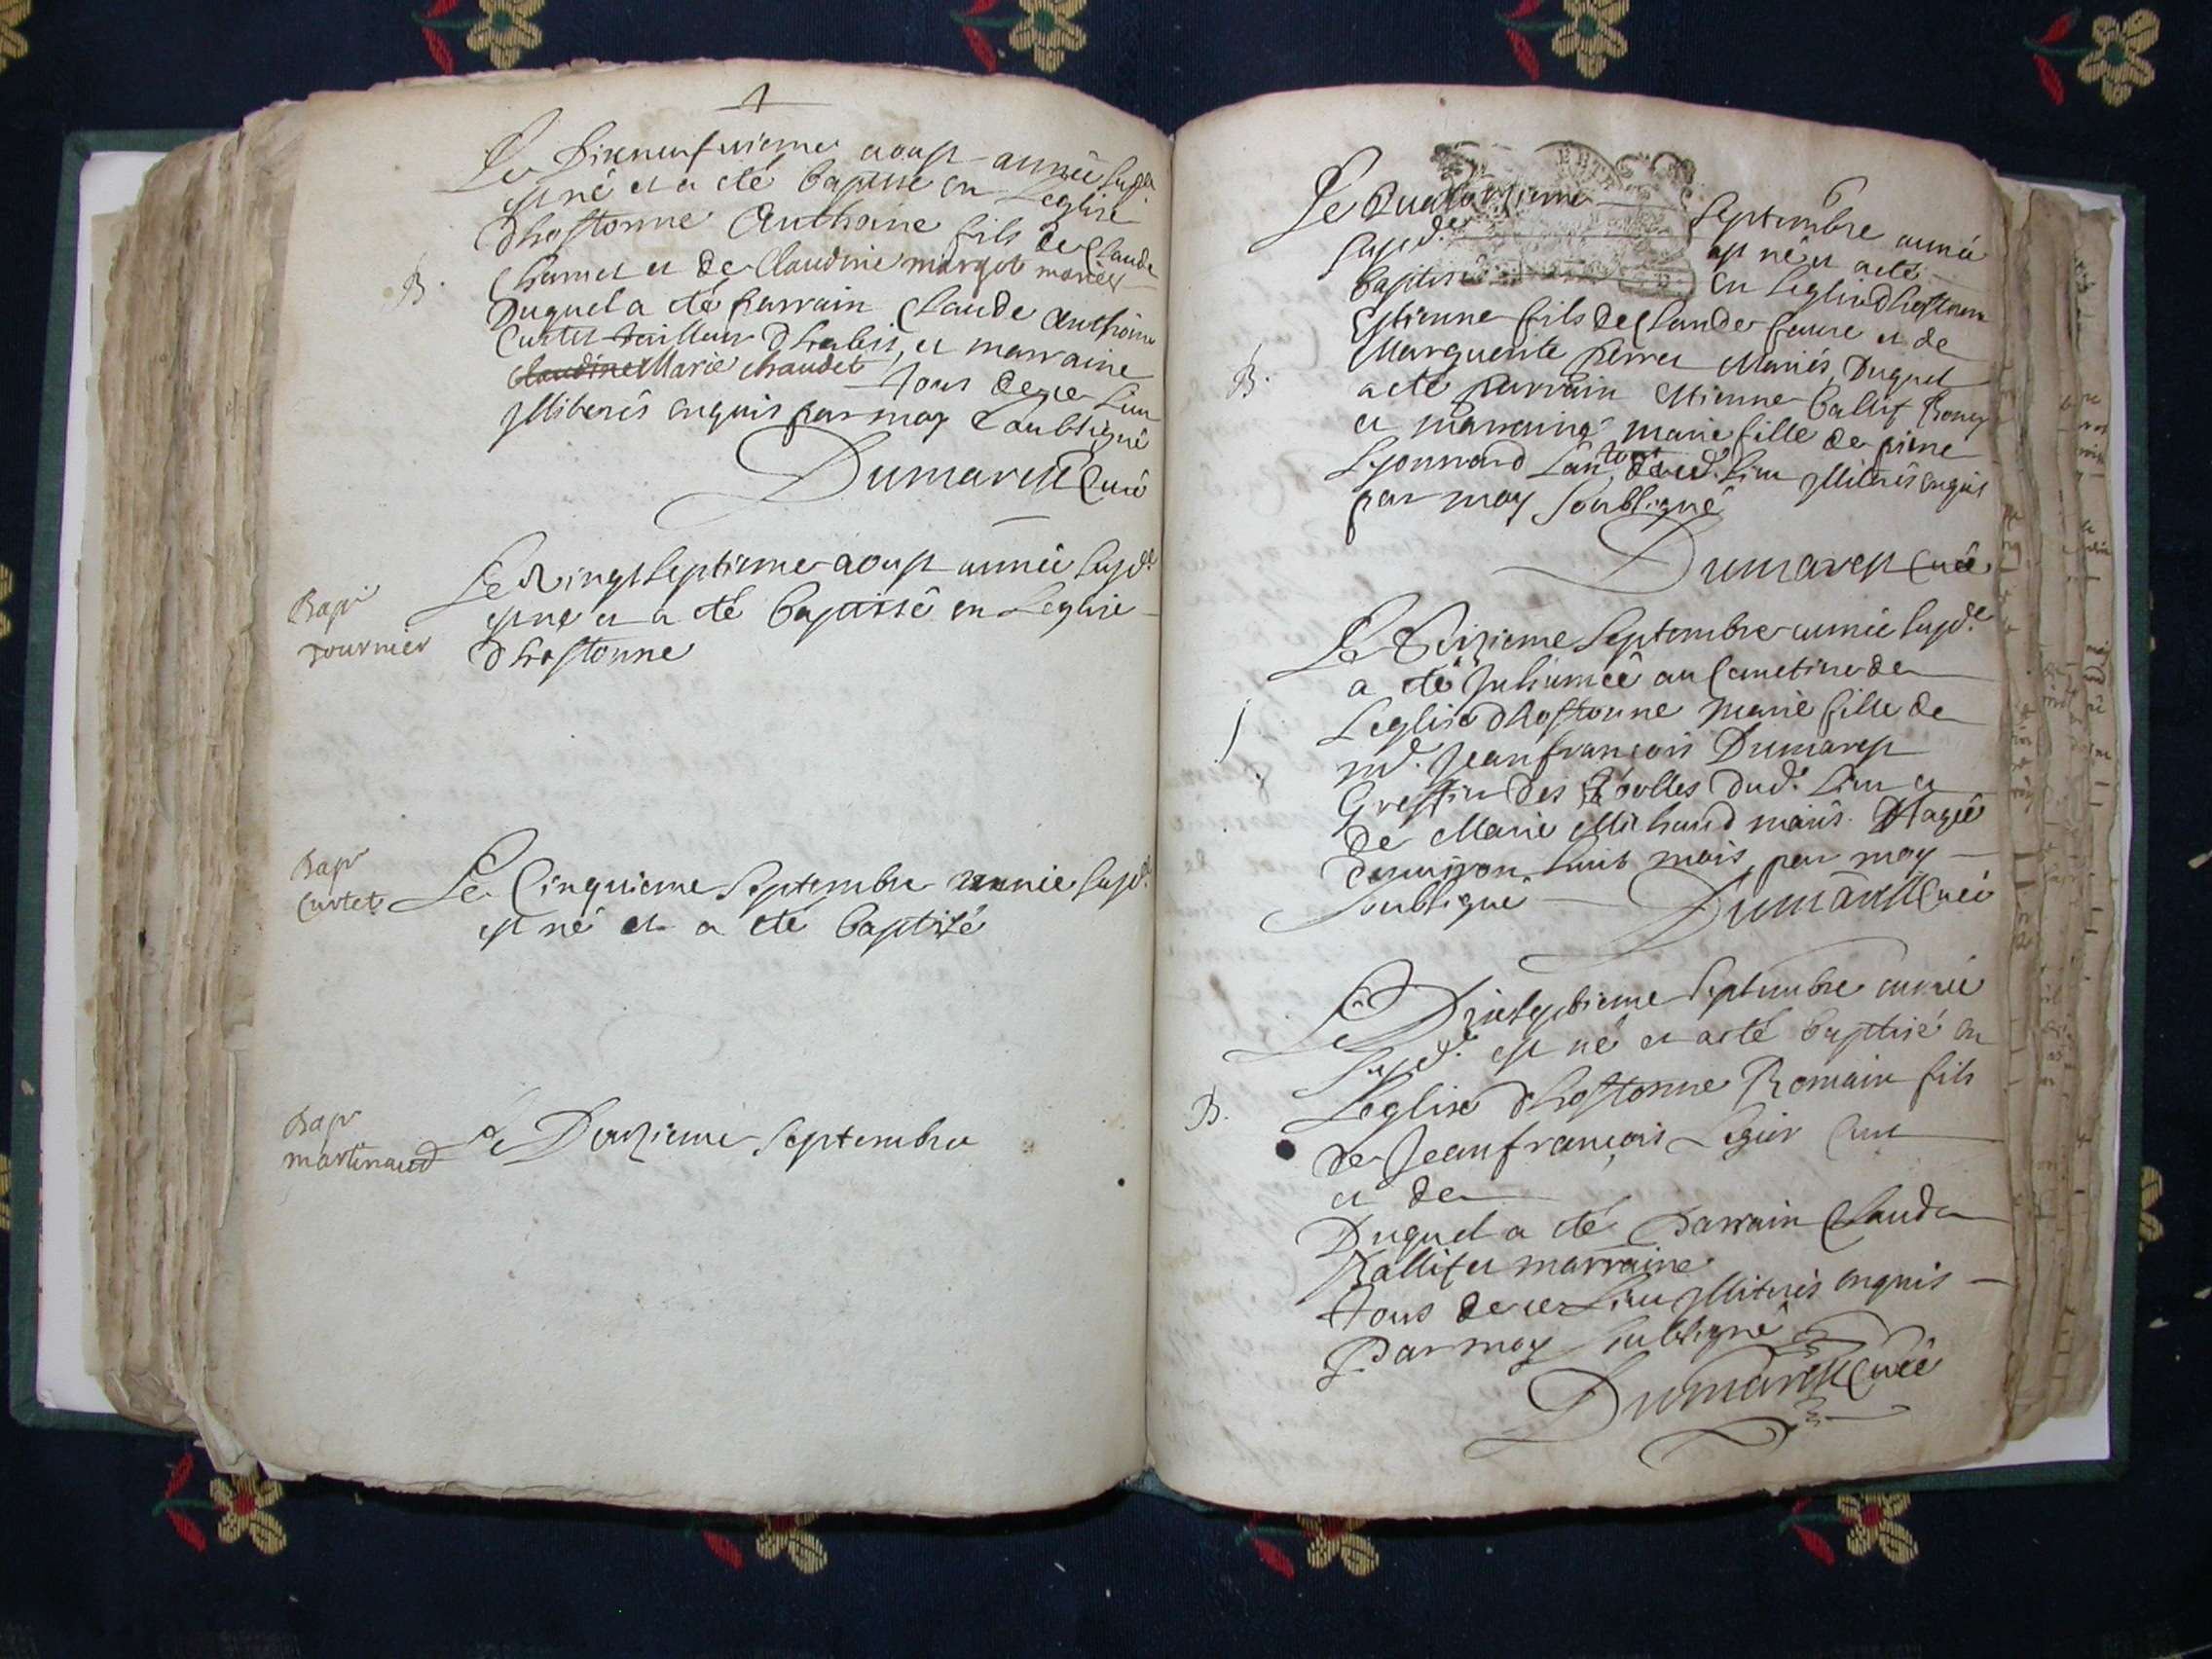 Le Dixneufvieme aoust année susd.
est né et a été baptisé en Leglise
dhostonne Anthoine fils de Claude
Chamet et de Claudine margot mariés
B.
Duquel a été parrain Claude Anthoine
Curtet tailleur dhabis, et marraine
Claudine Marie Chaudet tous de ce lieu
Illiterés enquis par moy Soubsigné
Dumarest Curé
Bap.
Tournier
Le Vingtseptieme aoust année susd.
est né et a été baptissé en Leglise
dhostonne
Bap.
Curtet
Le Cinquieme Septembre année susd.
est né et a été baptisé
Bap.
martinaud
Le Douzieme Septembre
Le Quatorzieme Septembre année
susd. est né et a été
baptisé en Leglise dhostonne
Etienne fils de Claude faure et de
Marguerite perret Mariés, Duquel
B.
a été parrain Etienne Ballif
et marraine marie fille de pierre
Lyonnard Illiterés enquis
par moy Soubsigné
Dumarest Curé
Le Seizieme Septembre année susd.
a été Inhumée au Cemetiere de
Leglise dhostonne Marie fille de
Jean françois Dumarest
Greffier des dud. Lieu et
de Marie Michaud mariés. agée
denviron huit mois, par moy
Soubsigné Dumarest Curé
Le Dixseptieme Septembre année
susd. est né et a été baptisé en
Leglise dhostonne Romain fils
B.
de Jean françois Legier
et de
Duquel a été Parrain Claude
Ballif et marraine
tous de ce Lieu Illiterés enquis
Par moy Soubsigné
Dumarest Curé